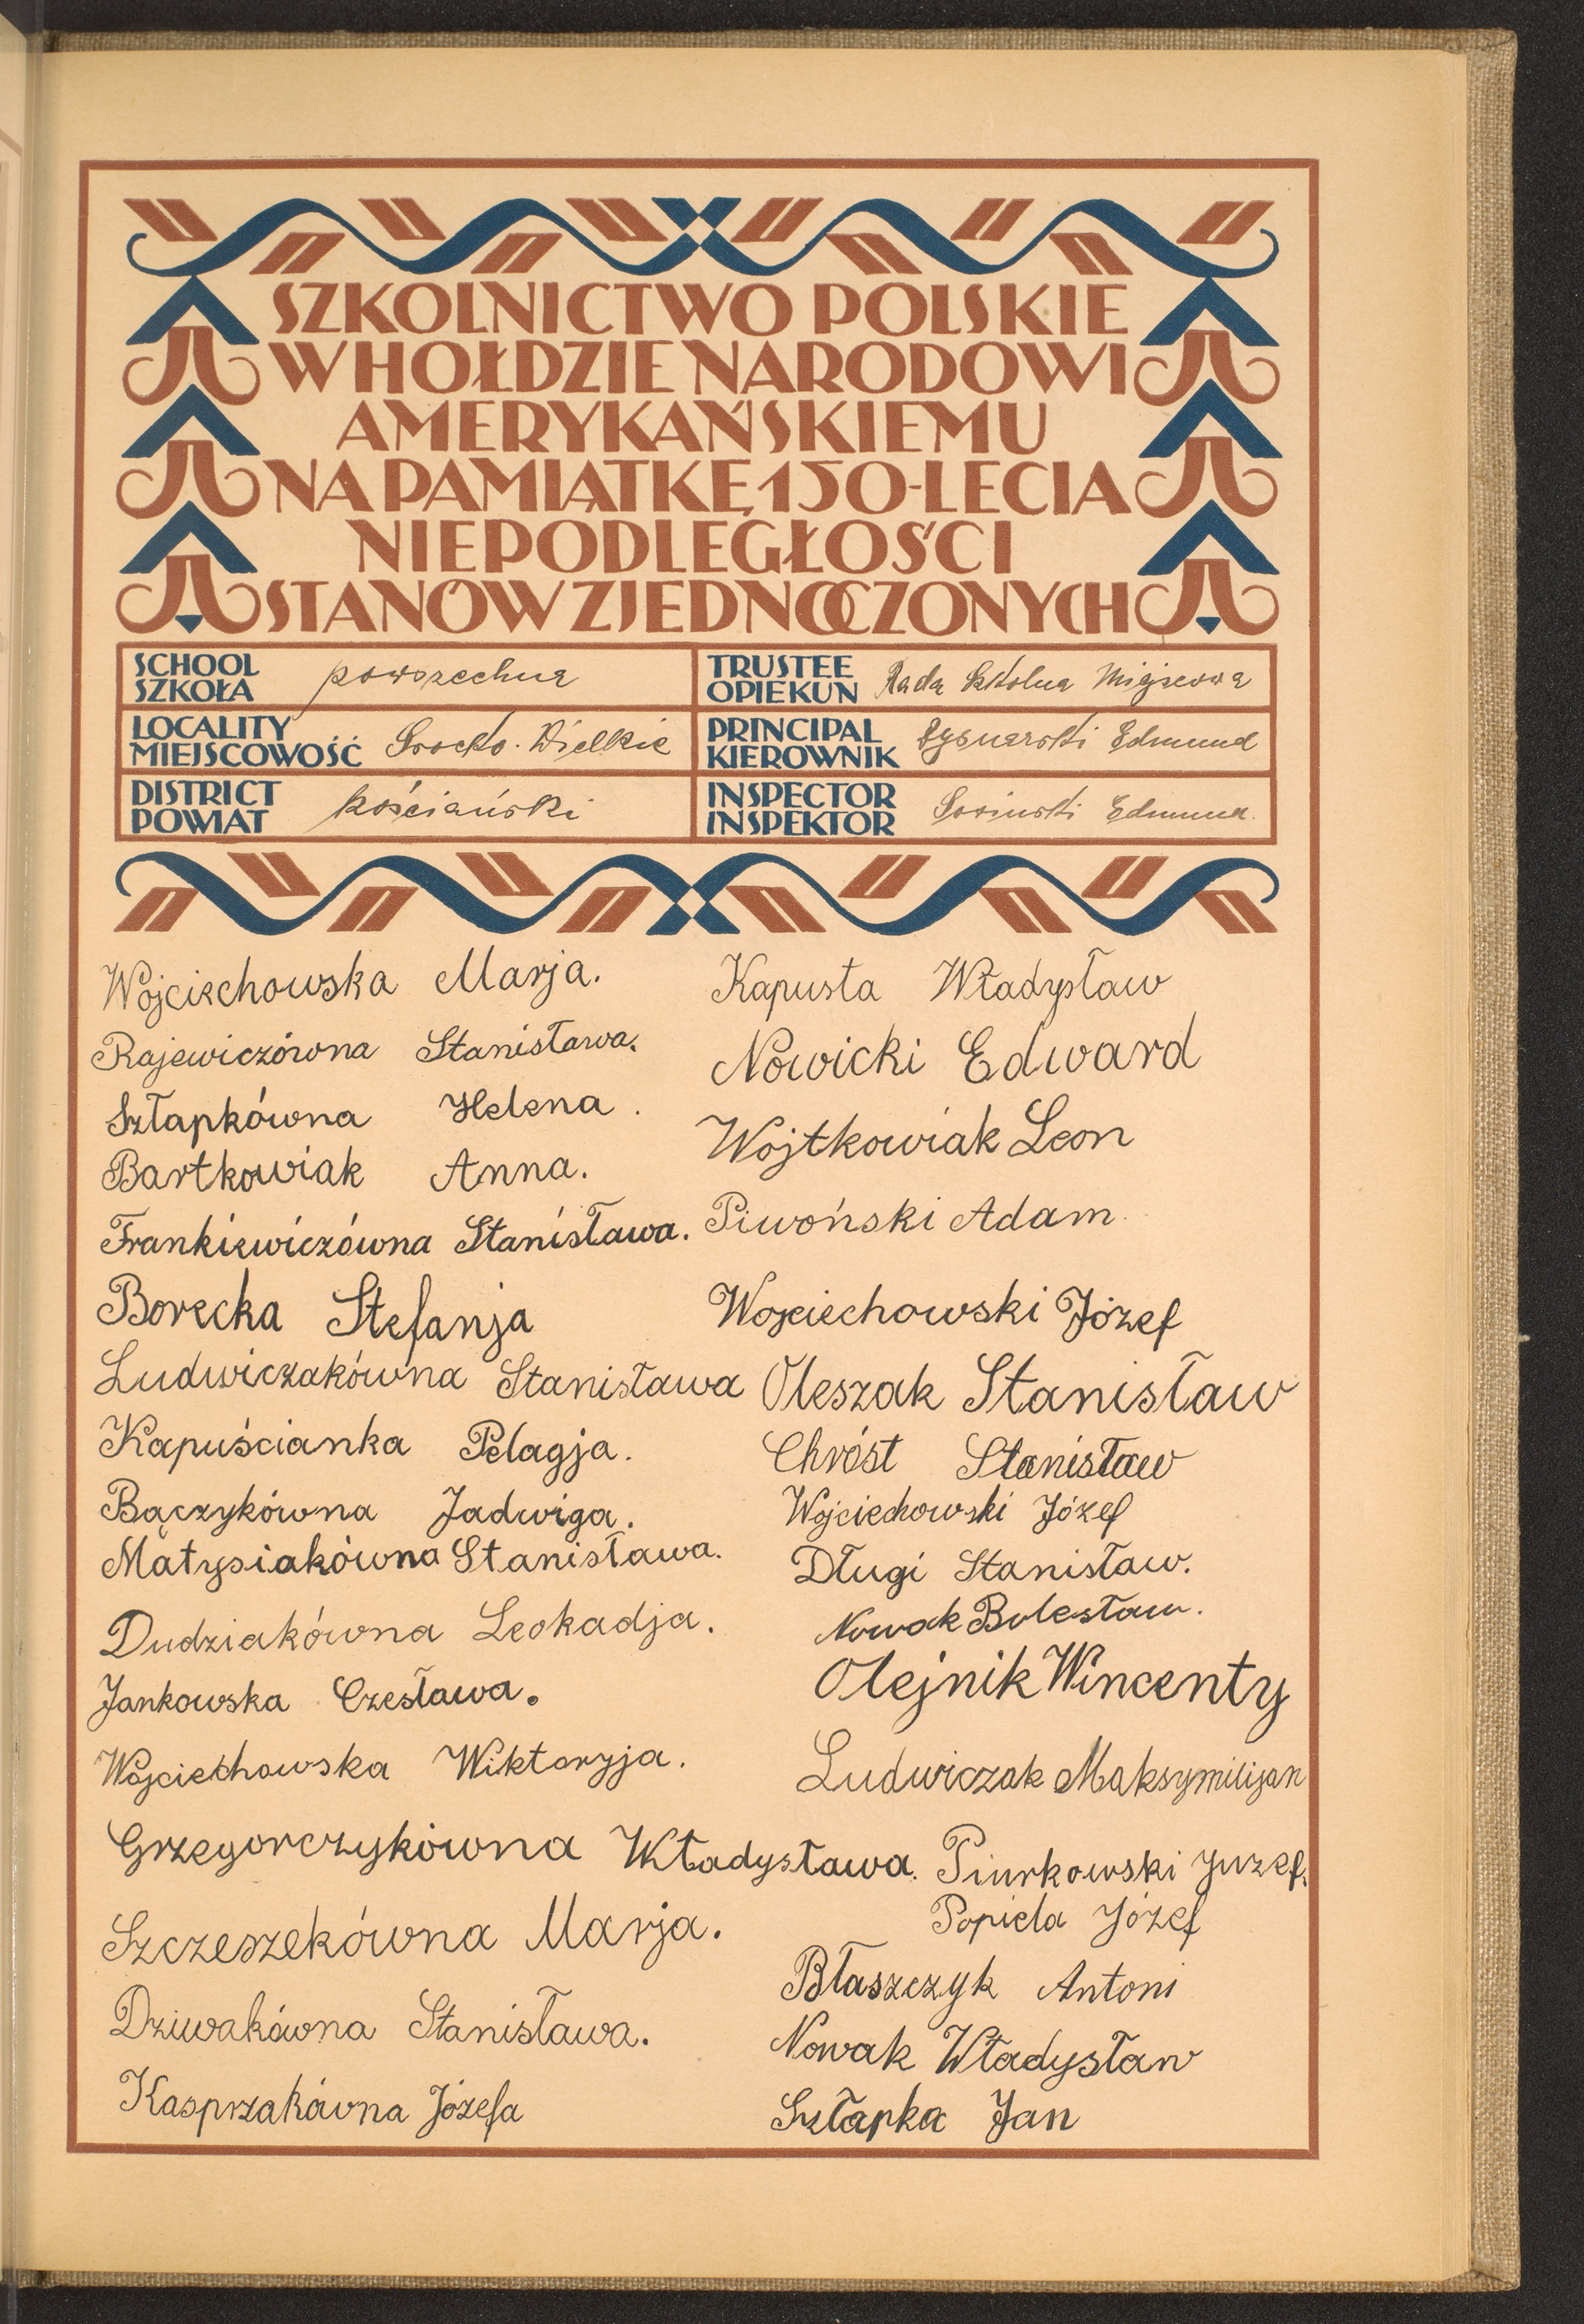 SZKOLNICTWO POLSKIE
W HOŁDZIE NARODOWI
AMERYKAŃSKIEMU
NA PAMIĄTKĘ 150-LECIA
NIEPODLEGŁOŚCI
STANÓW ZJEDNOCZONYCH
SCHOOL
SZKOŁA powszechna
TRUSTEE
OPIEKUN Rada Szkolna Miejscowa
LOCALITY
MIEJSCOWOŚĆ Srocko-Wielkie
PRINCIPAL
KIEROWNIK Edmund
DISTRICT
POWIAT kościański
INSPECTOR
INSPEKTOR Edmund.
Wojciechowska Marja.
Rajewiczówna Stanisława.
Szłapkówna Helena.
Bartkowiak Anna.
Frankiewiczówna Stanisława.
Borecka Stefanja
Ludwiczakówna Stanisława
Kapuścianka Pelagja.
Bączykówna Jadwiga.
Matysiakówna Stanisława.
Dudziakówna Leokadja.
Jankowska Czesława.
Wojciechowska Wiktoryja.
Grzegorczykówna Władysława.
Szczeszekówna Marja.
Dziwakówna Stanisława.
Kasprzakówna Józefa
Kapusta Władysław
Nowicki Edward
Wojtkowiak Leon
Piwoński Adam
Wojciechowski Józef
Oleszak Stanisław
Chróst Stanisław
Wojciechowski Józef
Długi Stanisław.
Nowak Bolesław.
Olejnik Wincenty
Ludwiczak Maksymilijan
Piurkowski Juzef.
Popiela Józef
Błaszczyk Antoni
Nowak Władysław
Szłapka Jan